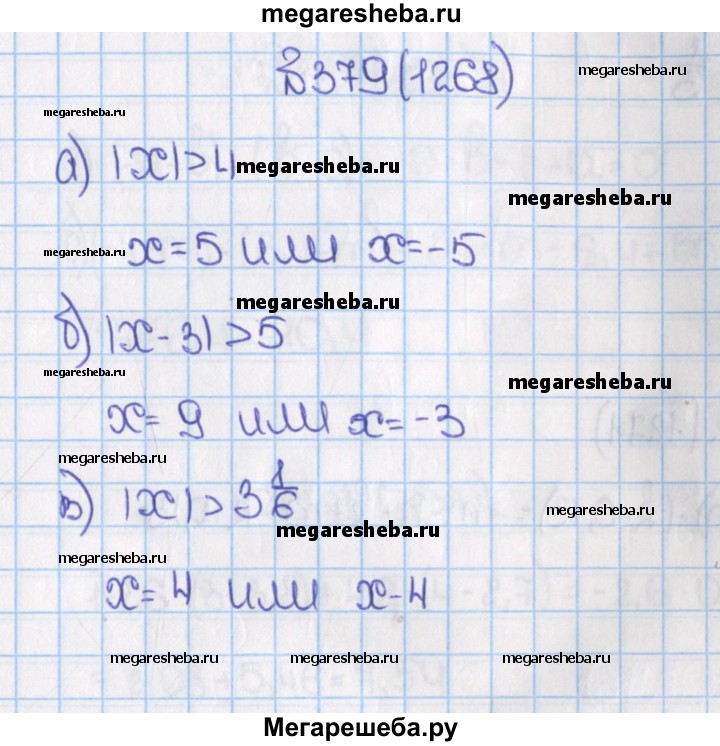 megaresheba.ru
№379(1268)
megaresheba.ru
megaresheba.ru
а) |x|>4
megaresheba.ru
megaresheba.ru
megaresheba.ru
x=5 или x=-5
megaresheba.ru
б) |x-3|>5
megaresheba.ru
megaresheba.ru
x=9 или x=-3
megaresheba.ru
в) |x|>3 1/6
megaresheba.ru
megaresheba.ru
megaresheba.ru
x=4 или x-4
megaresheba.ru megaresheba.ru megaresheba.ru
Мегарешеба.ру